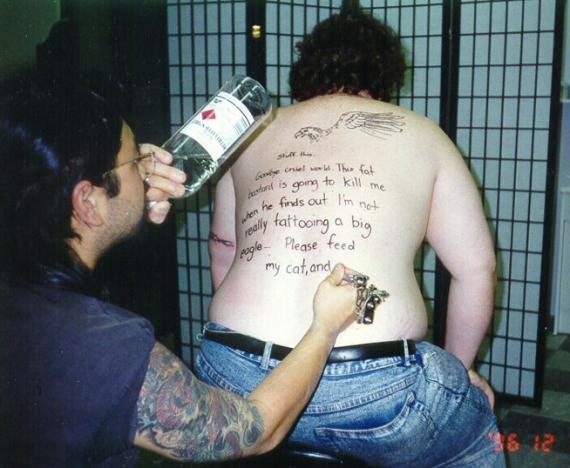 Stuff this.
Goodbye cruel world. This fat
bastard is going to kill me
when he finds out I'm not
really tattooing a big
eagle- Please feed
my cat, and
'96 12